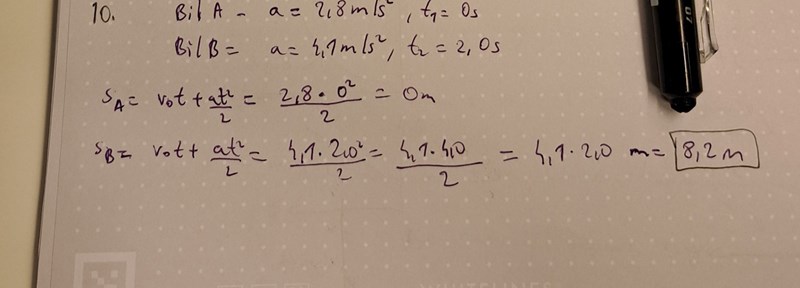 10. Bil A - a = 2,8 m/s², t₁ = 0s
Bil B = a = 4,1 m/s², t₂ = 2,0s
s_A = v₀t + at²/2 = 2,8 · 0²/2 = 0m
s_B = v₀t + at²/2 = 4,1 · 2,0²/2 = 4,1 · 4,0/2 = 4,1 · 2,0 m = 8,2 m